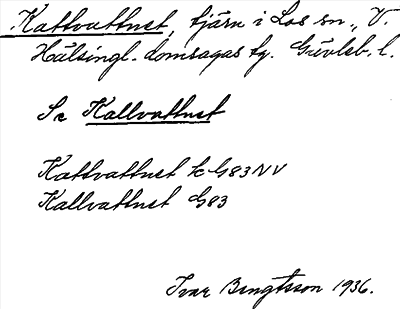 Kattvattnet, tjärn i Los sn., V.
Hälsingl. domsagas tg. Gävleb. l.
Se Kallvattnet
Kattvattnet k G83NV
Kallvattnet G83
Ivar Bengtsson 1936.